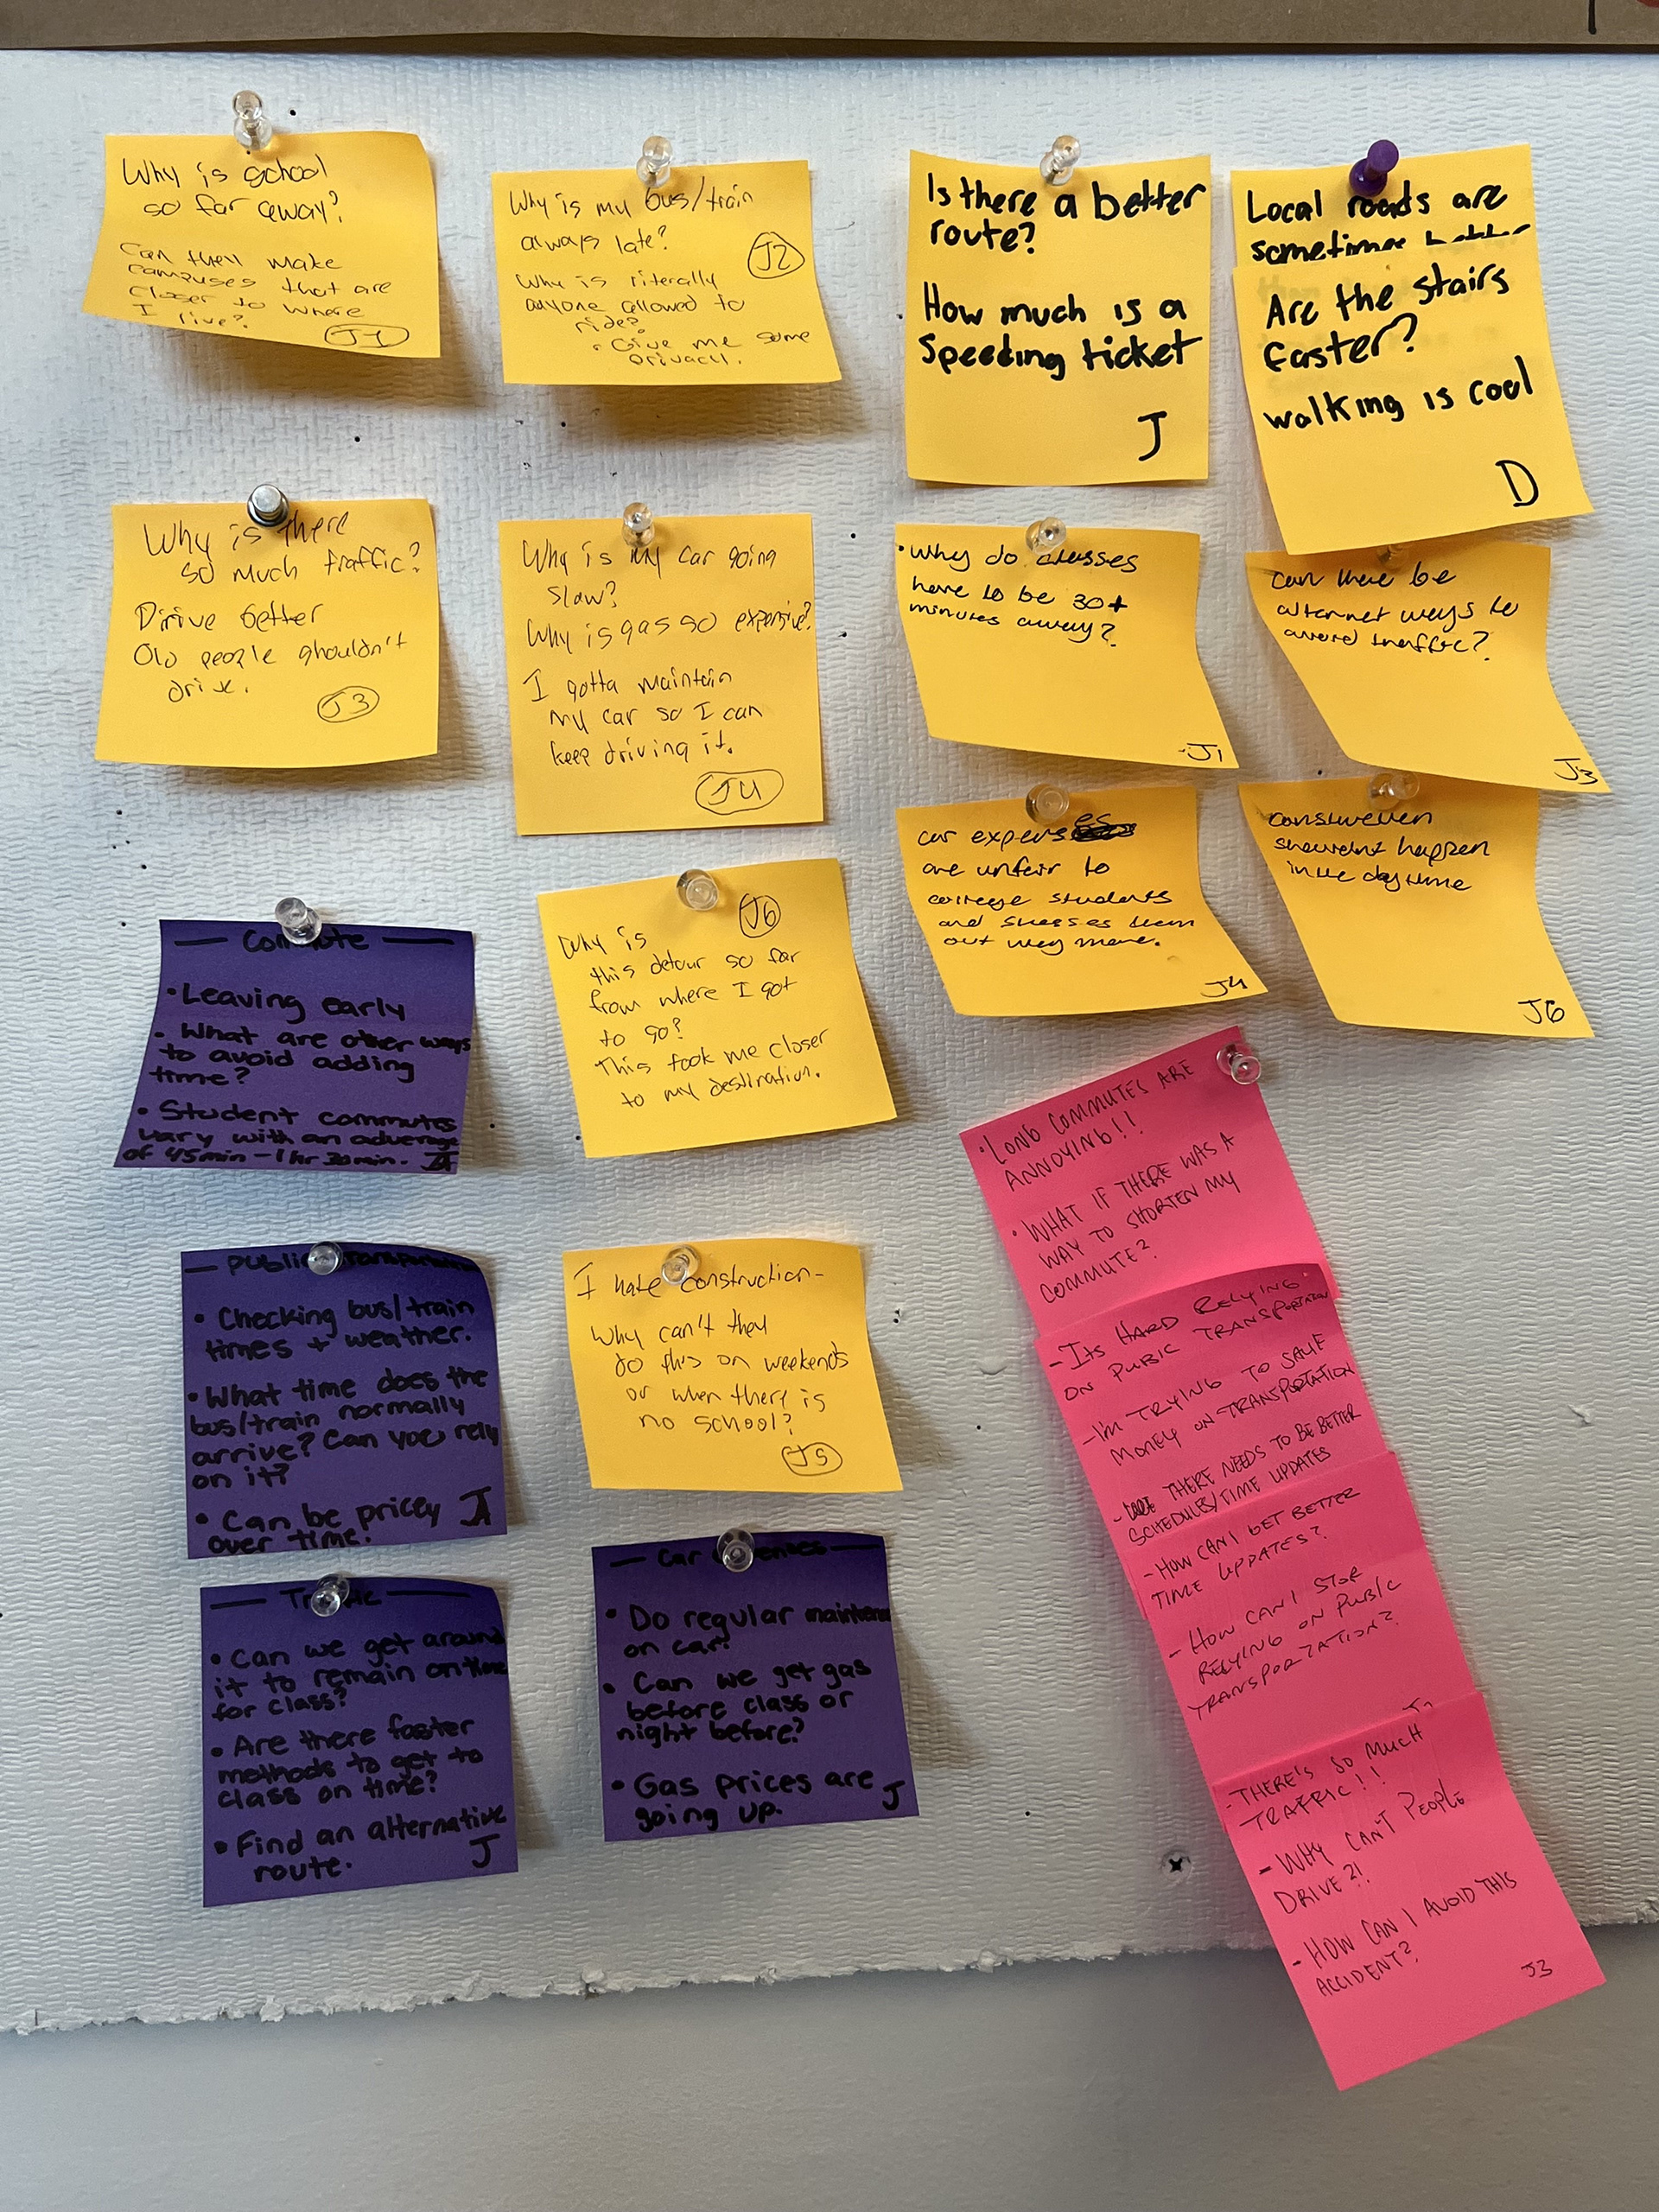 Why is school
so far away?
Can they make
campuses that are
closer to where
I live?
J1
Why is my bus/train
always late?
J2
Why is literally
anyone allowed to
ride?
• Give me some
privacy.
Is there a better
route?
How much is a
Speeding ticket
J
Local roads are
sometimes better
Are the stairs
faster?
walking is cool
D
Why is there
so much traffic?
Drive better
Old people shouldn't
drive.
J3
Why is my car going
slow?
Why is gas so expensive?
I gotta maintain
my car so I can
keep driving it.
J4
• Why do classes
have to be 30+
minutes away?
-J1
can there be
alternet ways to
avoid traffic?
J3
car expenses
are unfair to
college students
and stresses them
out way more.
J4
construction
shouldnt happen
in the day time
J6
— Commute —
• Leaving early
• What are other ways
to avoid adding
time?
• Student commutes
vary with an adverage
of 45min - 1hr 30min.
J6
Why is
this detour so far
from where I got
to go?
This took me closer
to my destination.
• LONG COMMUTES ARE
ANNOYING!!
• WHAT IF THERE WAS A
WAY TO SHORTEN MY
COMMUTE?
— Public transportation
• Checking bus/train
times + weather.
• What time does the
bus/train normally
arrive? Can you rely
on it?
• Can be pricey
over time.
I hate construction-
Why can't they
do this on weekends
or when there is
no school?
J5
- ITS HARD RELYING
ON PUBIC TRANSPORTATION
- I'M TRYING TO SAVE
MONEY ON TRANSPORTATION
- THERE NEEDS TO BE BETTER
SCHEDULES/TIME UPDATES
- HOW CAN I GET BETTER
TIME UPDATES?
- HOW CAN I STOP
RELYING ON PUBIC
TRANSPORTATION?
— Traffic —
• Can we get around
it to remain on time
for class?
• Are there faster
methods to get to
class on time?
• Find an alternative
route.
J
— Car Expenses —
• Do regular maintenance
on car.
• Can we get gas
before class or
night before?
• Gas prices are
going up.
J
- THERE'S SO MUCH
TRAFFIC!!
- WHY CAN'T PEOPLE
DRIVE?!
- HOW CAN I AVOID THIS
ACCIDENT?
J3